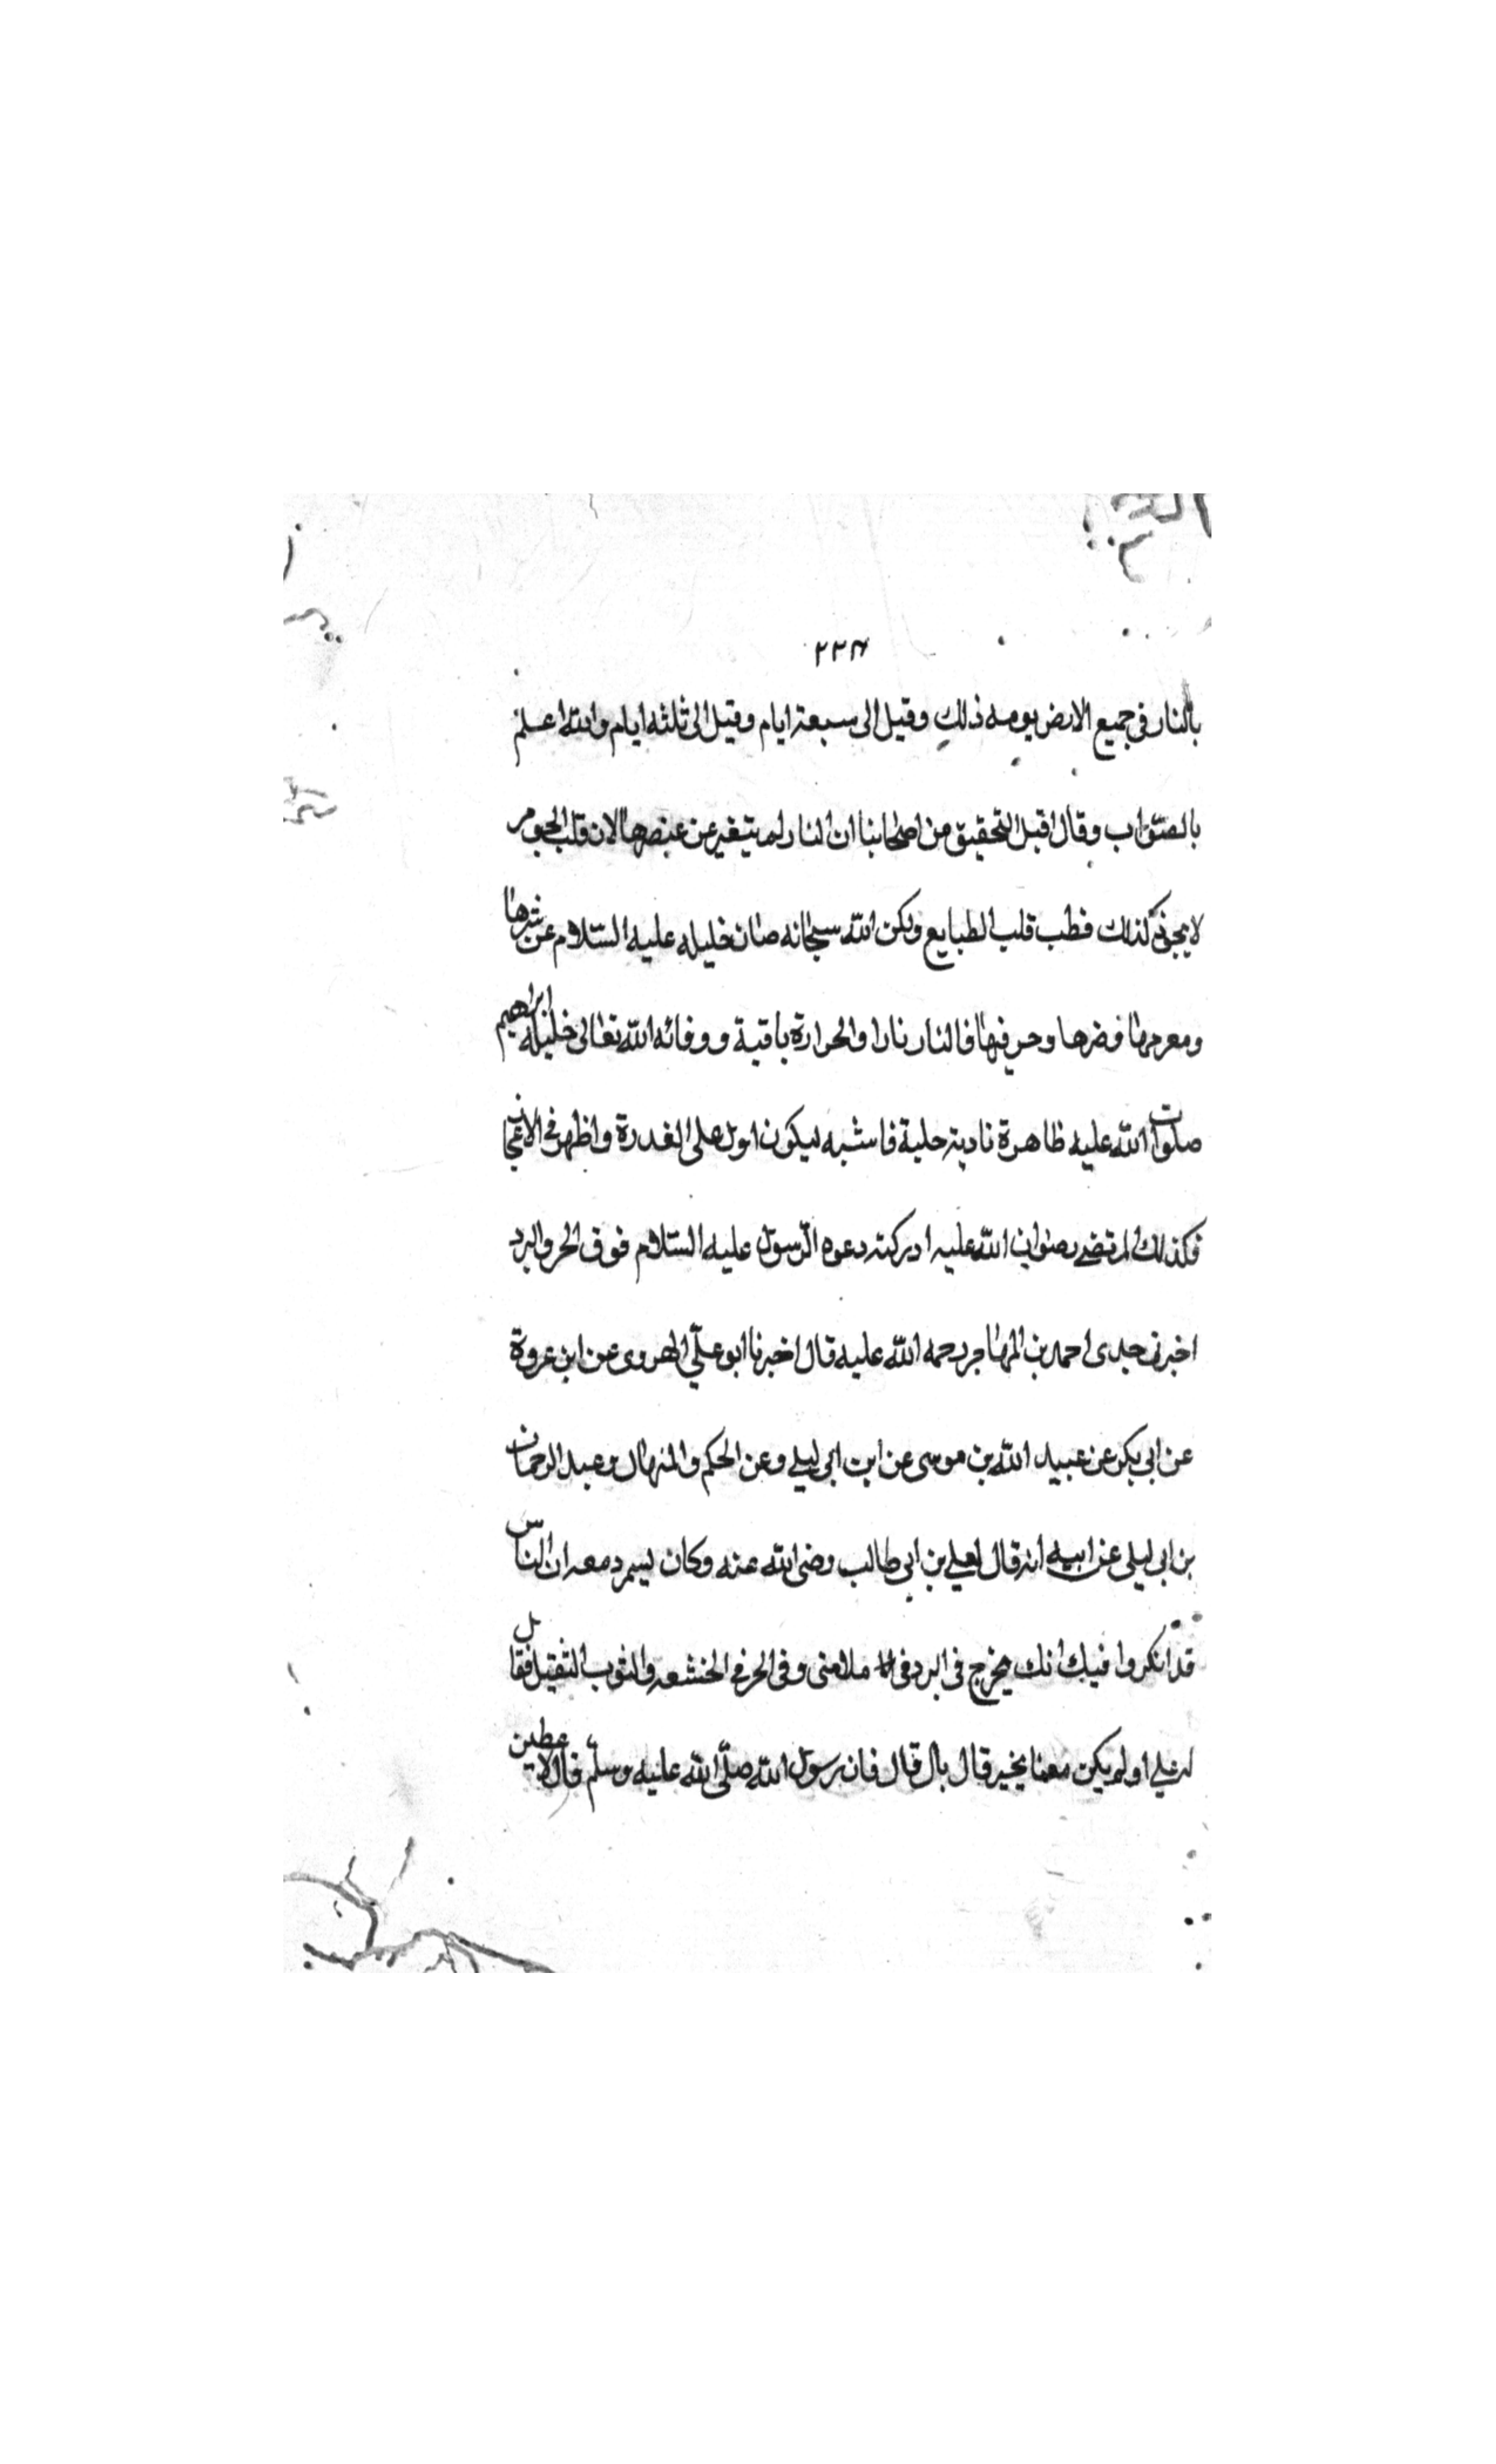 ٢٣٤
بالنار في جميع الارض يومه ذلك وقيل الى سبعة ايام وقيل الى ثلثه ايام والله اعلم
بالصواب وقال اقيل التحقيق من اصحابنا ان النار لم يتغير عن عنصرها لان قلب الجوهر
لا يجوز كذلك قلب الطبايع ولكن الله سبحانه صان خليله عليه السلام عن شرها
ومعرتها وضرها وحرقها فالنار نارا والحرارة باقية ووفائه الله تعالى خليله ابراهيم
صلوات الله عليه ظاهرة فاشبه ليكون على القدرة واظهر في
فكذلك المرتضى رضوان الله عليه ادركته دعوه الرسول عليه السلام فوق الحر والبرد
اخبرني جدى احمد بن المهاجر رحمه الله عليه قال اخبرنا ابو علي الهروى عن ابن عروة
عن ابي بكر عن عبيد الله بن موسى عن ابن ابى ليلى وعن الحكم والمنهال وعبد الرحمان
بن ابى ليلى عن ابيه انه قال لعلي بن ابى طالب رضى الله عنه وكان يسمر معه ان الناس
قد انكروا فيك انك يخرج في البرد في ملامتى وفى الحر في الخشعه والثوب الثقيل فقال
له علي اولم يكن معنا بخيبر قال بال قال فان رسول الله صلى الله عليه وسلم قال لاعطين